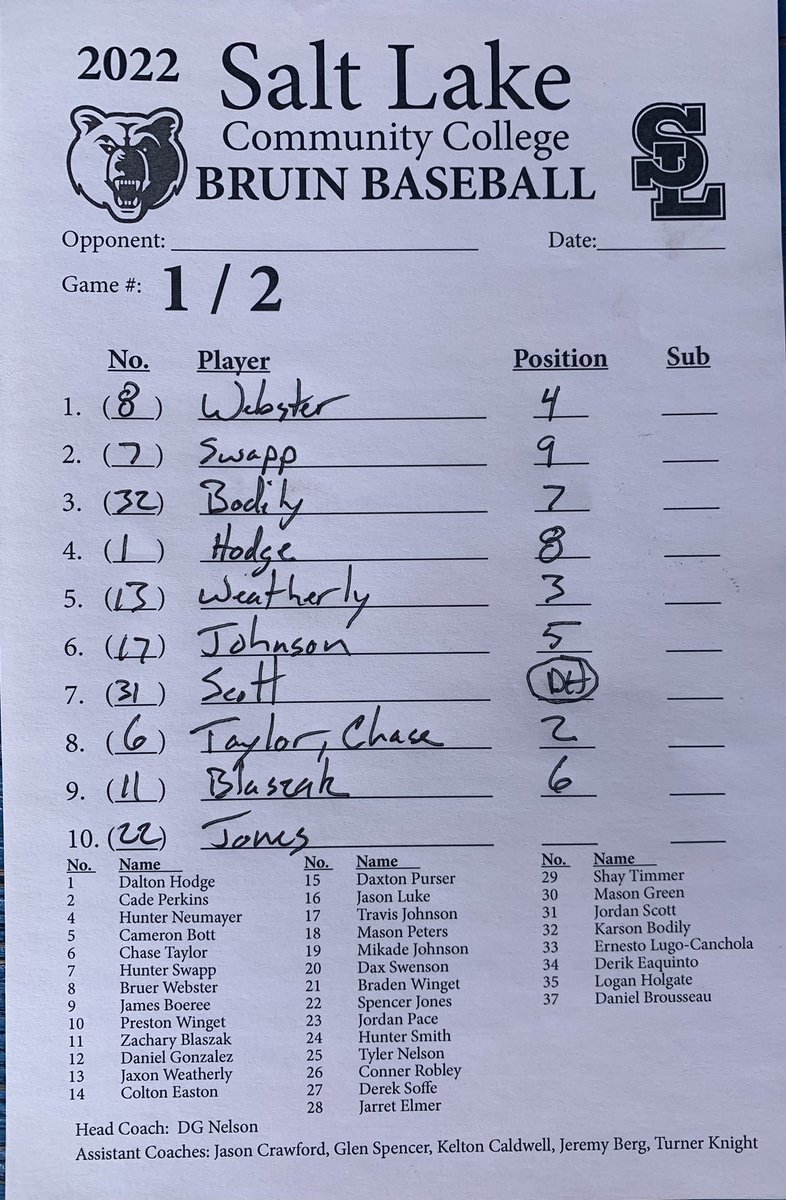 2022 Salt Lake
Community College
BRUIN BASEBALL
SL
Opponent: Date:
Game #: 1 / 2
No. Player Position Sub
1. (8) Webster 4
2. (7) Swapp 9
3. (32) Bodily 7
4. (1) Hodge 8
5. (13) Weatherly 3
6. (17) Johnson 5
7. (31) Scott DH
8. (6) Taylor, Chase 2
9. (11) Blaszak 6
10. (22) Jones
No. Name
1 Dalton Hodge
2 Cade Perkins
4 Hunter Neumayer
5 Cameron Bott
6 Chase Taylor
7 Hunter Swapp
8 Bruer Webster
9 James Boeree
10 Preston Winget
11 Zachary Blaszak
12 Daniel Gonzalez
13 Jaxon Weatherly
14 Colton Easton
No. Name
15 Daxton Purser
16 Jason Luke
17 Travis Johnson
18 Mason Peters
19 Mikade Johnson
20 Dax Swenson
21 Braden Winget
22 Spencer Jones
23 Jordan Pace
24 Hunter Smith
25 Tyler Nelson
26 Conner Robley
27 Derek Soffe
28 Jarret Elmer
No. Name
29 Shay Timmer
30 Mason Green
31 Jordan Scott
32 Karson Bodily
33 Ernesto Lugo-Canchola
34 Derik Eaquinto
35 Logan Holgate
37 Daniel Brousseau
Head Coach: DG Nelson
Assistant Coaches: Jason Crawford, Glen Spencer, Kelton Caldwell, Jeremy Berg, Turner Knight